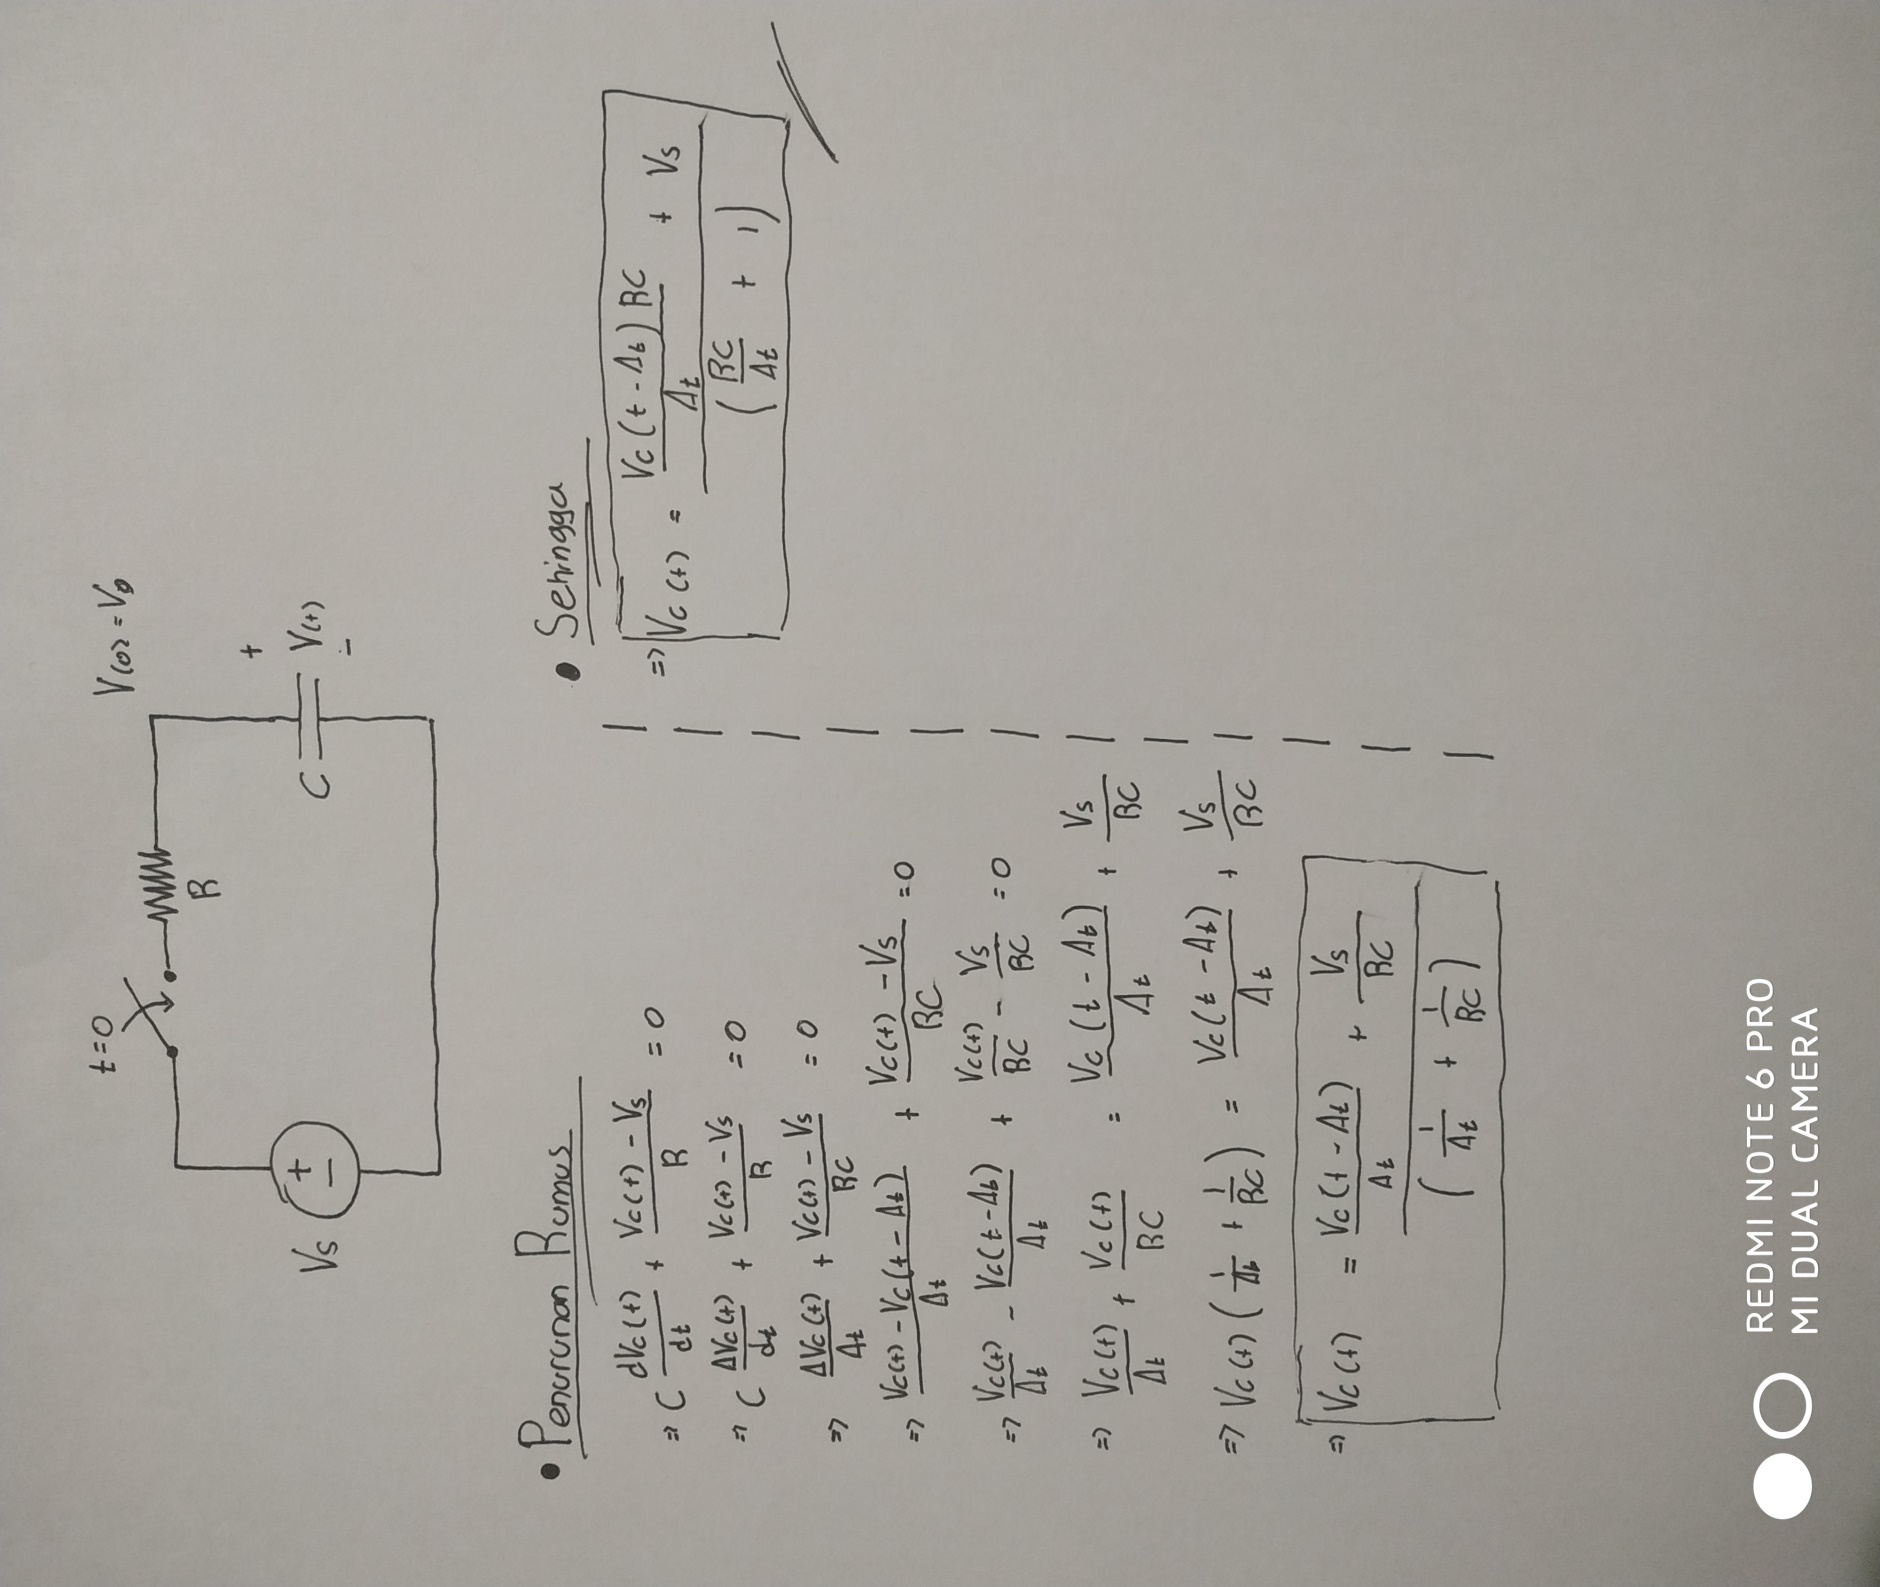 t=0
V(0) = V0
Vs
+
-
R
C
+
V(t)
-
• Penurunan Rumus
=> C dVc(t)/dt + (Vc(t) - Vs)/R = 0
=> C ΔVc(t)/dt + (Vc(t) - Vs)/R = 0
=> ΔVc(t)/Δt + (Vc(t) - Vs)/RC = 0
=> (Vc(t) - Vc(t - Δt))/Δt + (Vc(t) - Vs)/RC = 0
=> Vc(t)/Δt - Vc(t - Δt)/Δt + Vc(t)/RC - Vs/RC = 0
=> Vc(t)/Δt + Vc(t)/RC = Vc(t - Δt)/Δt + Vs/RC
=> Vc(t) (1/Δt + 1/RC) = Vc(t - Δt)/Δt + Vs/RC
=> Vc(t) = (Vc(t - Δt)/Δt + Vs/RC)/(1/Δt + 1/RC)
• Sehingga
=> Vc(t) = (Vc(t - Δt)RC/Δt + Vs)/(RC/Δt + 1)
REDMI NOTE 6 PRO
MI DUAL CAMERA